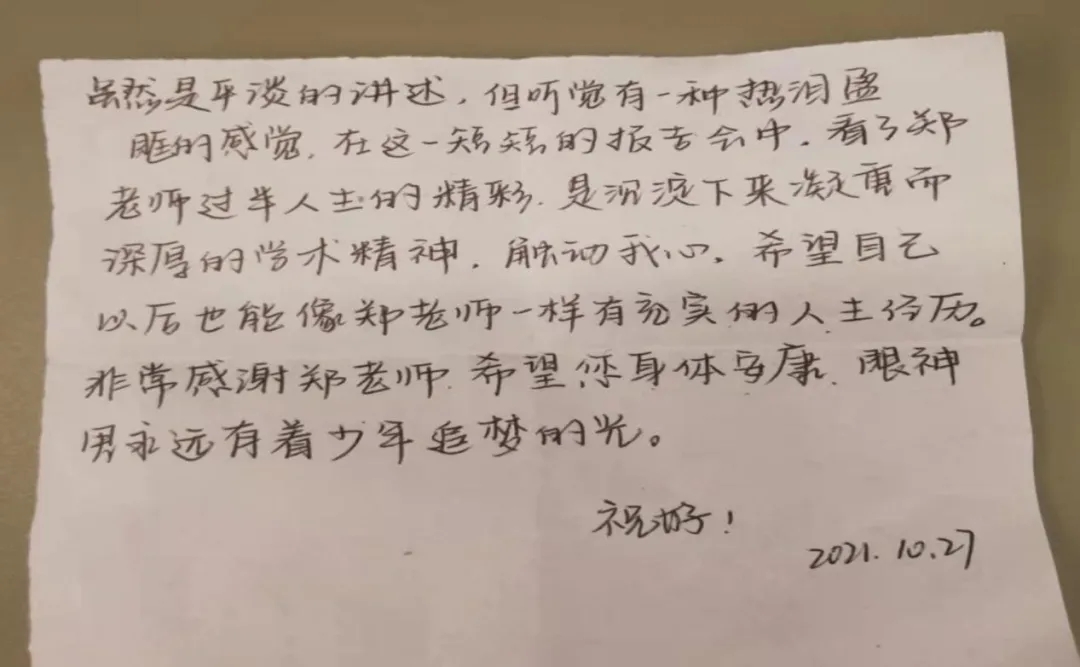 虽然是平淡的讲述，但听觉有一种热泪盈
眶的感觉，在这一短短的报告会中，看了郑
老师过半人生的精彩，是沉淀下来凝重而
深厚的学术精神，触动我心。希望自己
以后也能像郑老师一样有充实的人生经历。
非常感谢郑老师，希望您身体安康，眼神
里永远有着少年追梦的光。
祝好！
2021.10.27